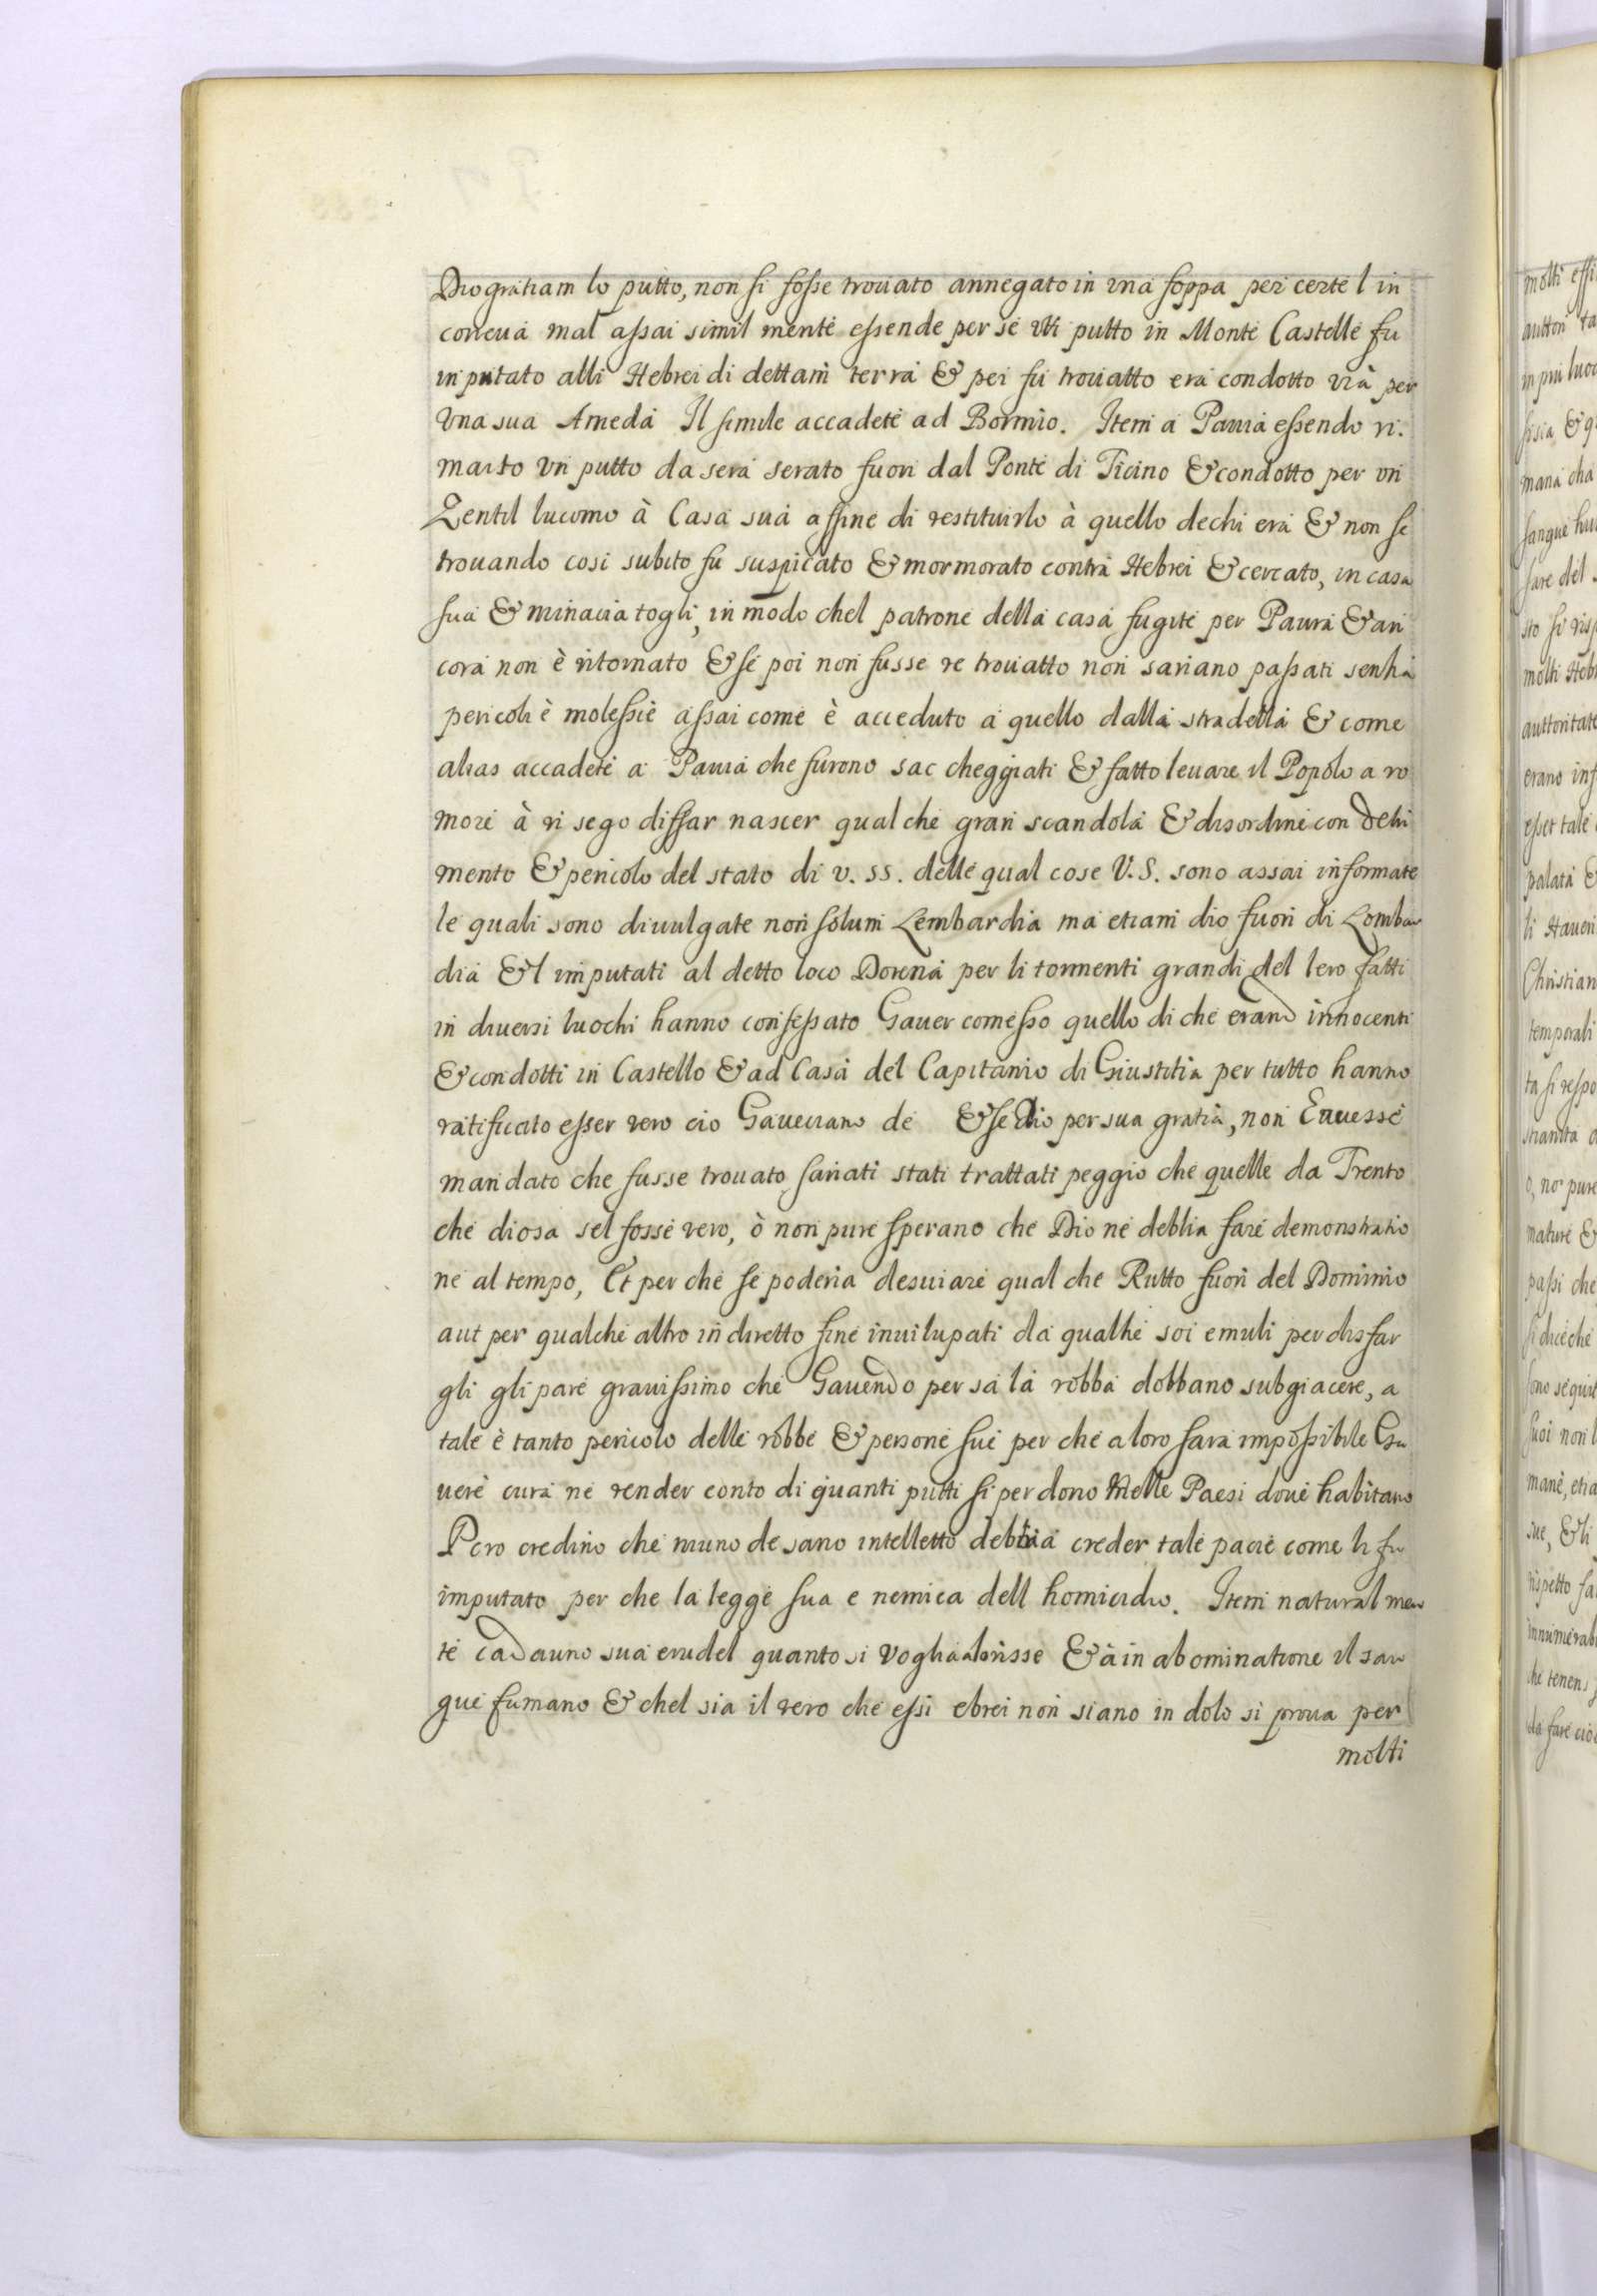 Diogratiam lo putto, non si fosse trouato annegato in vna foppa per certe l in
correua mal assai simil mente essende per se Vn putto in Monte Castelle fu
in putato alli Hebrei di dettam terra & pei fu trouatto era condotto via per
Vna sua Ameda Il simile accadete ad Bormio. Item a Pauia essendo ri.
masto vn putto da sera serato fuori dal Ponte di Ticino & condotto per vn
Zentil lucomo à Casa sua affine di restituirlo à quello dechi era & non se
trouando cosi subito fu suspicato & mormorato contra Hebrei & cercato, in casa
sua & minacia togli, in modo chel patrone della casa fugite per Paura & an
cora non è ritornato & se poi non fusse re trouatto non sariano passati senha
pericoli è molessie assai come è acceduto a quello dalla stradella & come
alias accadete a Pauia che furono sac cheggiati & fatto leuare il Popolo a ro
more à ri sego diffar nascer qual che gran scandola & disordine con detri
mento & pericolo del stato di v. ss. delle qual cose V. S. sono assai informate
le quali sono diuulgate non solum Lembardia ma etiam dio fuori di Lombar
dia & l imputati al detto loco Dorena per li tormenti grandi del lero fatti
in diuersi luochi hanno confessato Gauer comesso quello di che erano innocenti
& condotti in Castello & ad Casa del Capitanio di Giustitia per tutto hanno
ratificato esser vero cio Gaueuano de & se Dio per sua gratia, non Euuesse
mandato che fusse trouato sariati stati trattati peggio che quelle da Trento
che diosa sel fosse vero, ò non pure sperano che Dio ne deblia fare demonstratio
ne al tempo, Et per che se poderia desuiare qual che Rutto fuori del Dominio
aut per qualche altro in diretto fine inuilupati da qualhe soi emuli per disfar
gli gli pare grauissimo che Gauendo per sa la robba dobbano subgiacere, a
tale è tanto pericolo delle robbe & persone sue per che a loro sara impossibile Ga
uere cura ne render conto di quanti putti si perdono Nelle Paesi doue habitano
Pero credino che niuno de sano intelletto debbia creder tale pacie come li fu
imputato per che la legge sua e nemica dell homicidio. Item natural men
te cadauno sua crudel quanto si voglia alorisse & à in abominatione il san
gue fumano & chel sia il vero che essi ebrei non siano in dolo si proua per
molti